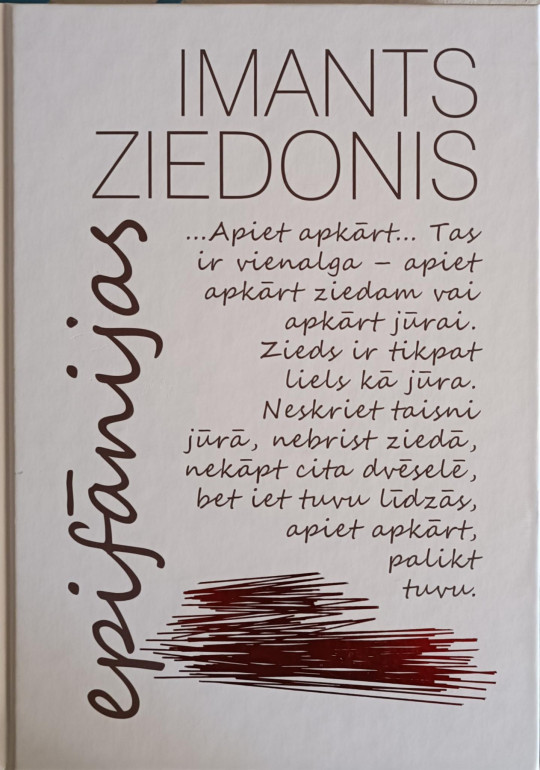 IMANTS
ZIEDONIS
epifānijas
...Apiet apkārt... Tas
ir vienalga – apiet
apkārt ziedam vai
apkārt jūrai.
Zieds ir tikpat
liels kā jūra.
Neskriet taisni
jūrā, nebrist ziedā,
nekāpt cita dvēselē,
bet iet tuvu līdzās,
apiet apkārt,
palikt
tuvu.